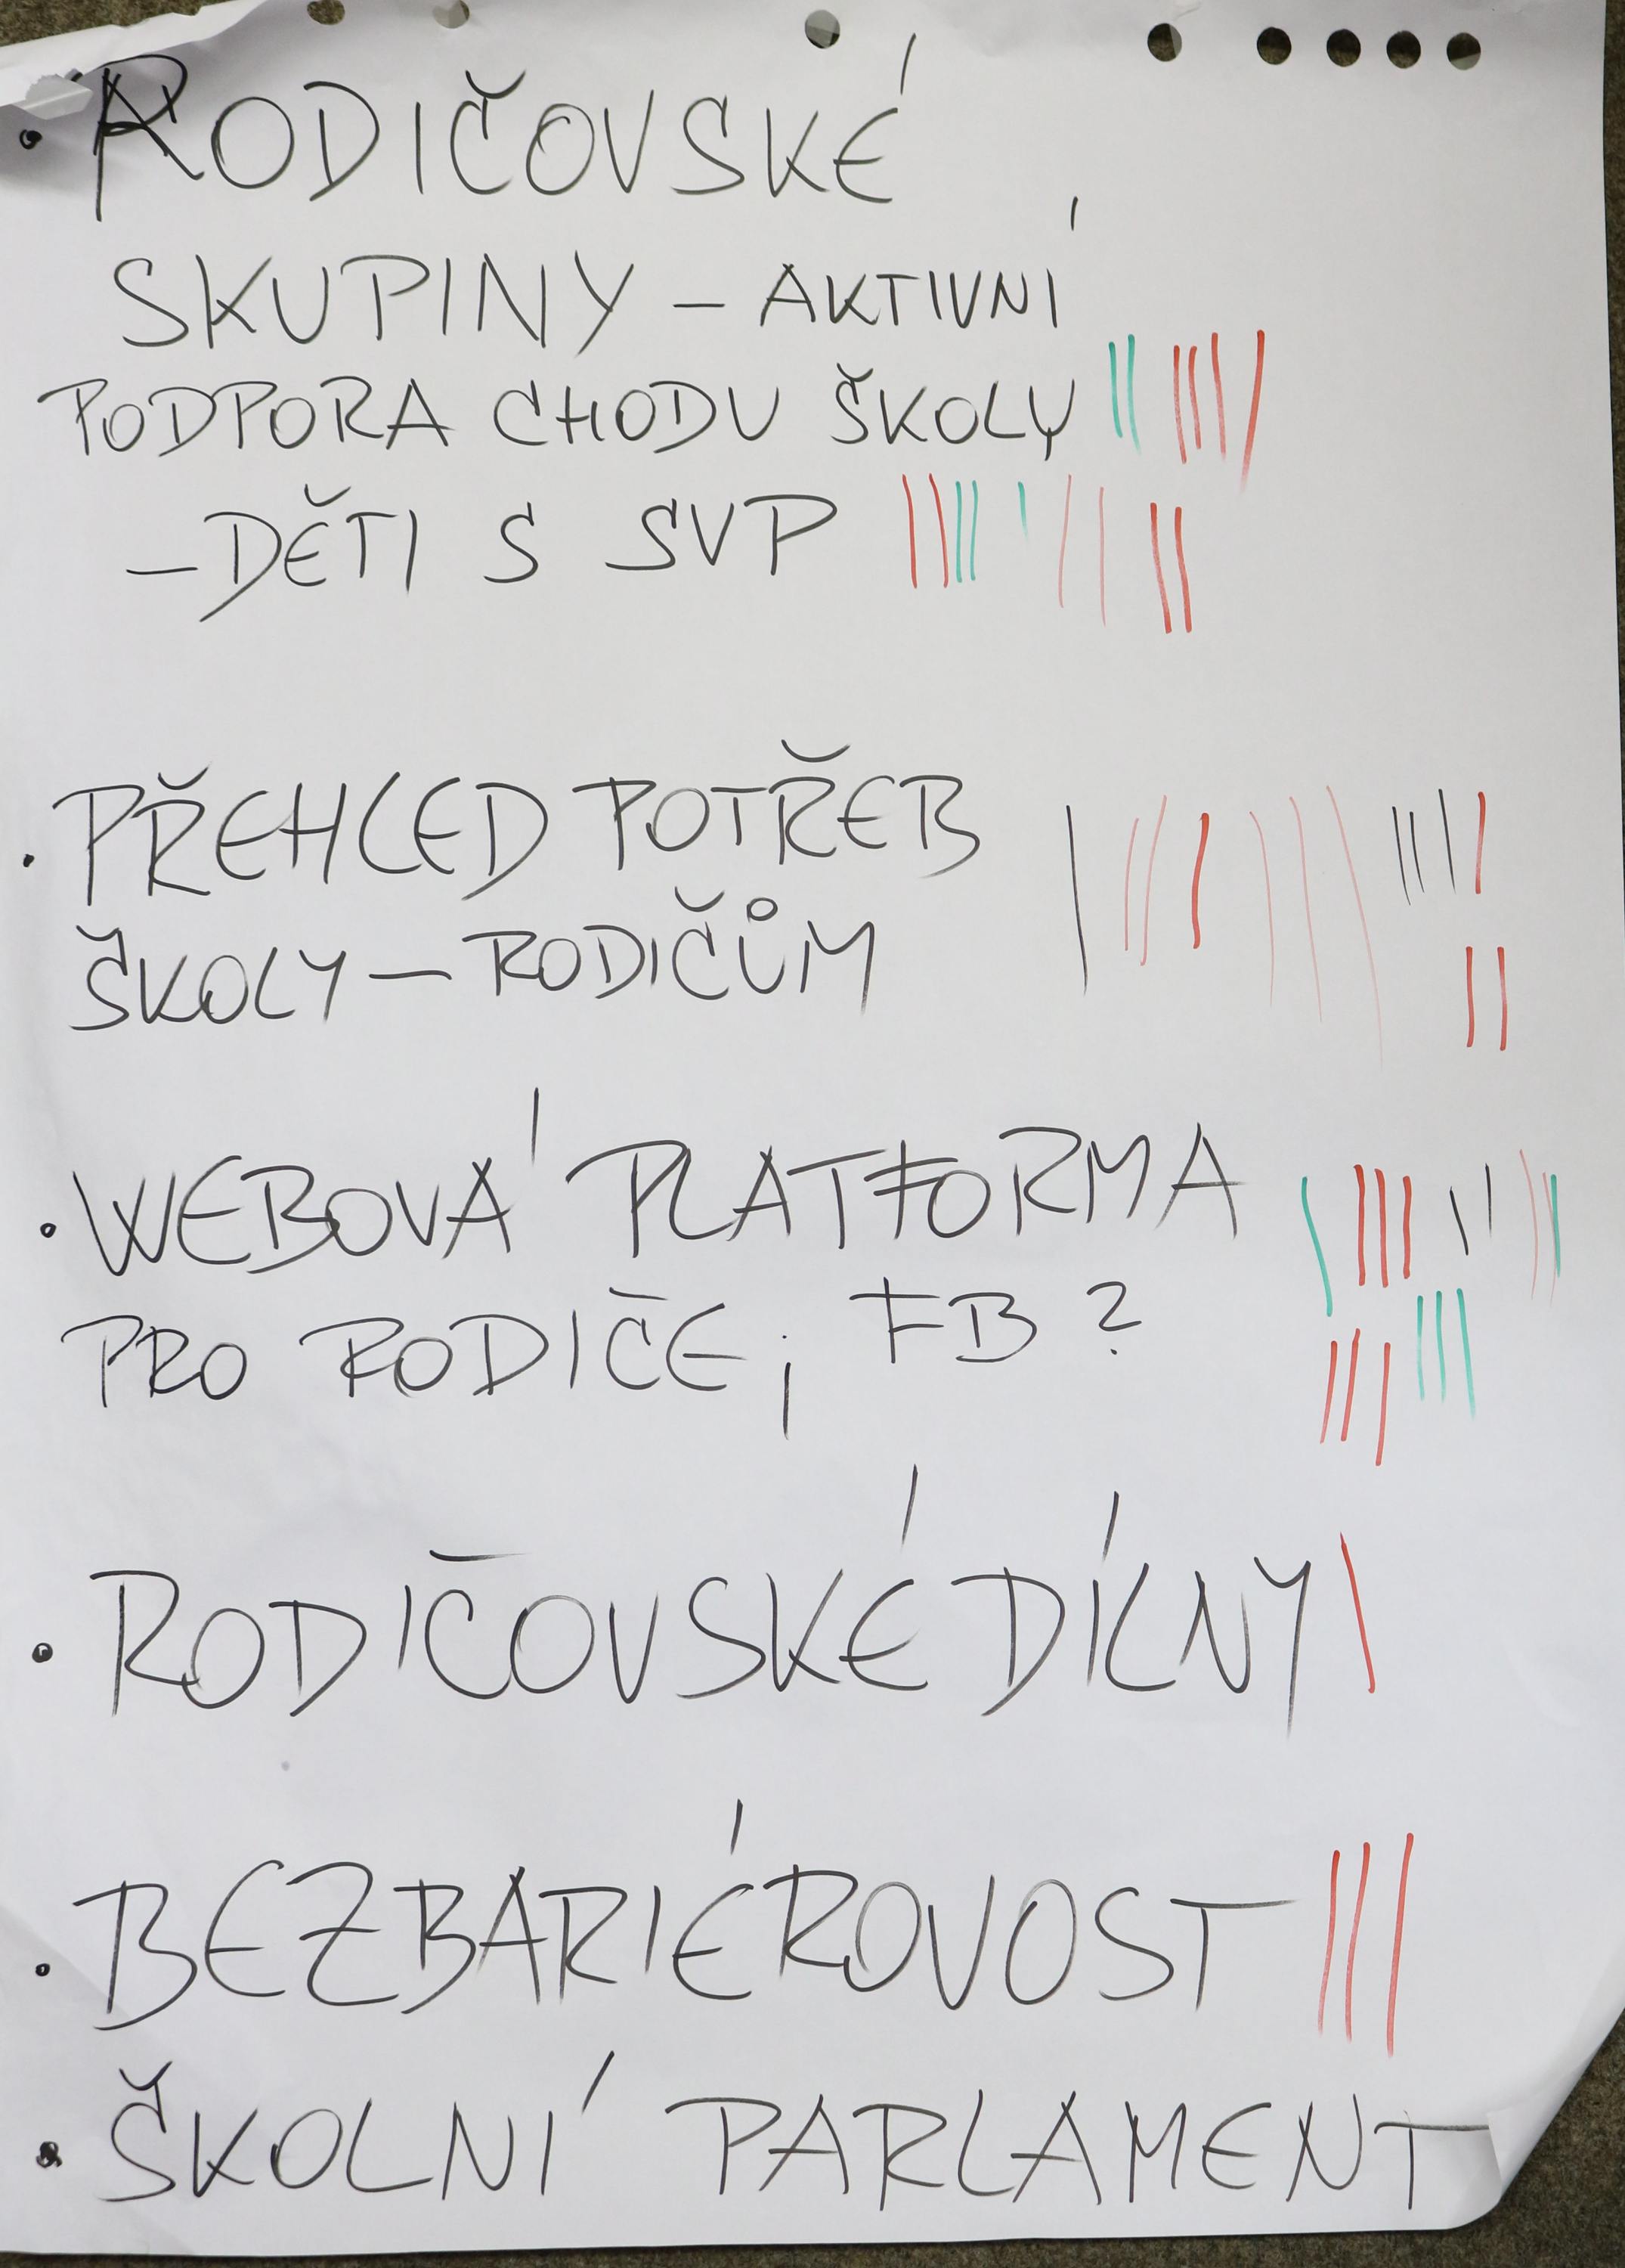 • RODIČOVSKÉ
SKUPINY – AKTIVNÍ
PODPORA CHODU ŠKOLY
– DĚTI S SVP
• PŘEHLED POTŘEB
ŠKOLY – RODIČŮM
• WEBOVÁ PLATFORMA
PRO RODIČE; FB ?
• RODIČOVSKÉ DÍLNY
• BEZBARIÉROVOST
• ŠKOLNÍ PARLAMENT